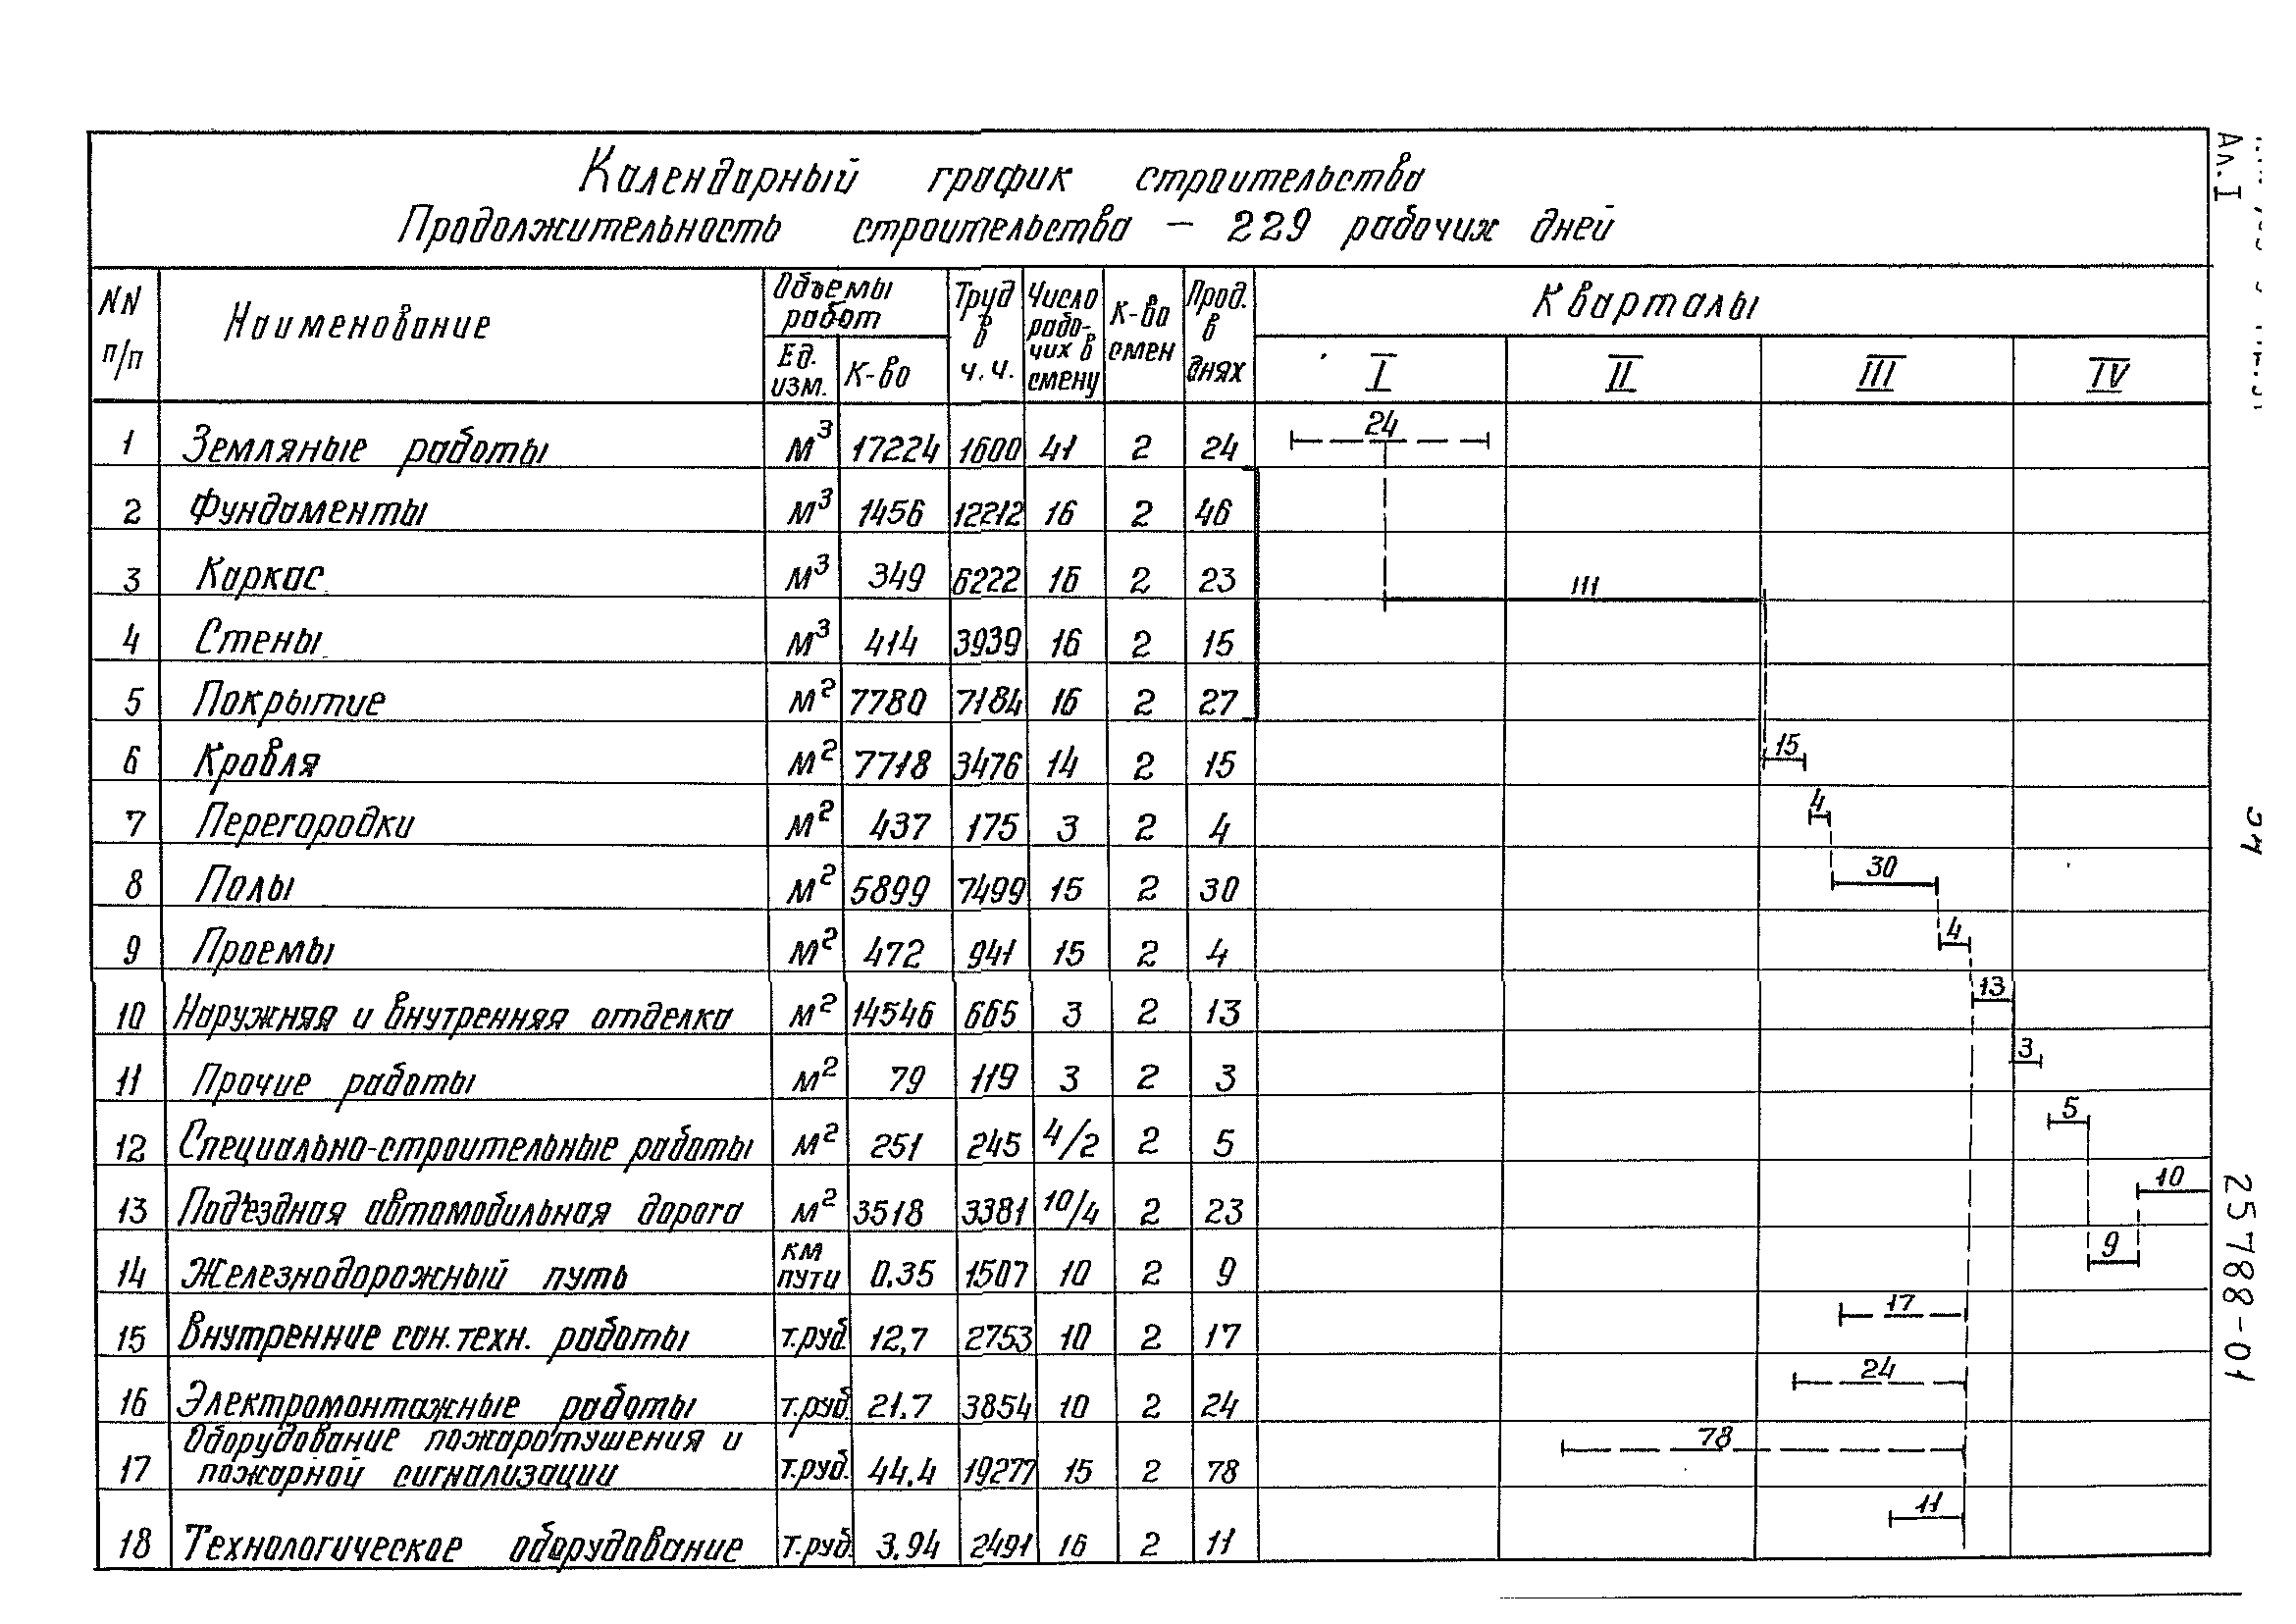 Календарный график строительства
Продолжительность строительства – 229 рабочих дней
NN п/п Наименование Объемы работ Ед. изм. К-во Труд в ч.ч. Число рабо-чих в смену К-во смен Прод. в днях Кварталы I II III IV
1 Земляные работы м³ 17224 1600 41 2 24 24
2 Фундаменты м³ 1456 12212 16 2 46
3 Каркас м³ 349 6222 16 2 23 111
4 Стены м³ 414 3939 16 2 15
5 Покрытие м² 7780 7184 16 2 27
6 Кровля м² 7718 3476 14 2 15 15
7 Перегородки м² 437 175 3 2 4 4
8 Полы м² 5899 7499 15 2 30 30
9 Проемы м² 472 941 15 2 4 4
10 Наружняя и внутренняя отделка м² 14546 665 3 2 13 13
11 Прочие работы м² 79 119 3 2 3 3
12 Специально-строительные работы м² 251 245 4/2 2 5 5
13 Подъездная автомобильная дорога м² 3518 3381 10/4 2 23 10
14 Железнодорожный путь км пути 0.35 1507 10 2 9 9
15 Внутренние сан.техн. работы т.руб. 12,7 2753 10 2 17 17
16 Электромонтажные работы т.руб. 21.7 3854 10 2 24 24
17 Оборудование пожаротушения и
пожарной сигнализации т.руб. 44.4 19277 15 2 78 78
18 Технологическое оборудование т.руб. 3.94 2491 16 2 11 11
Ал. I
25788-01